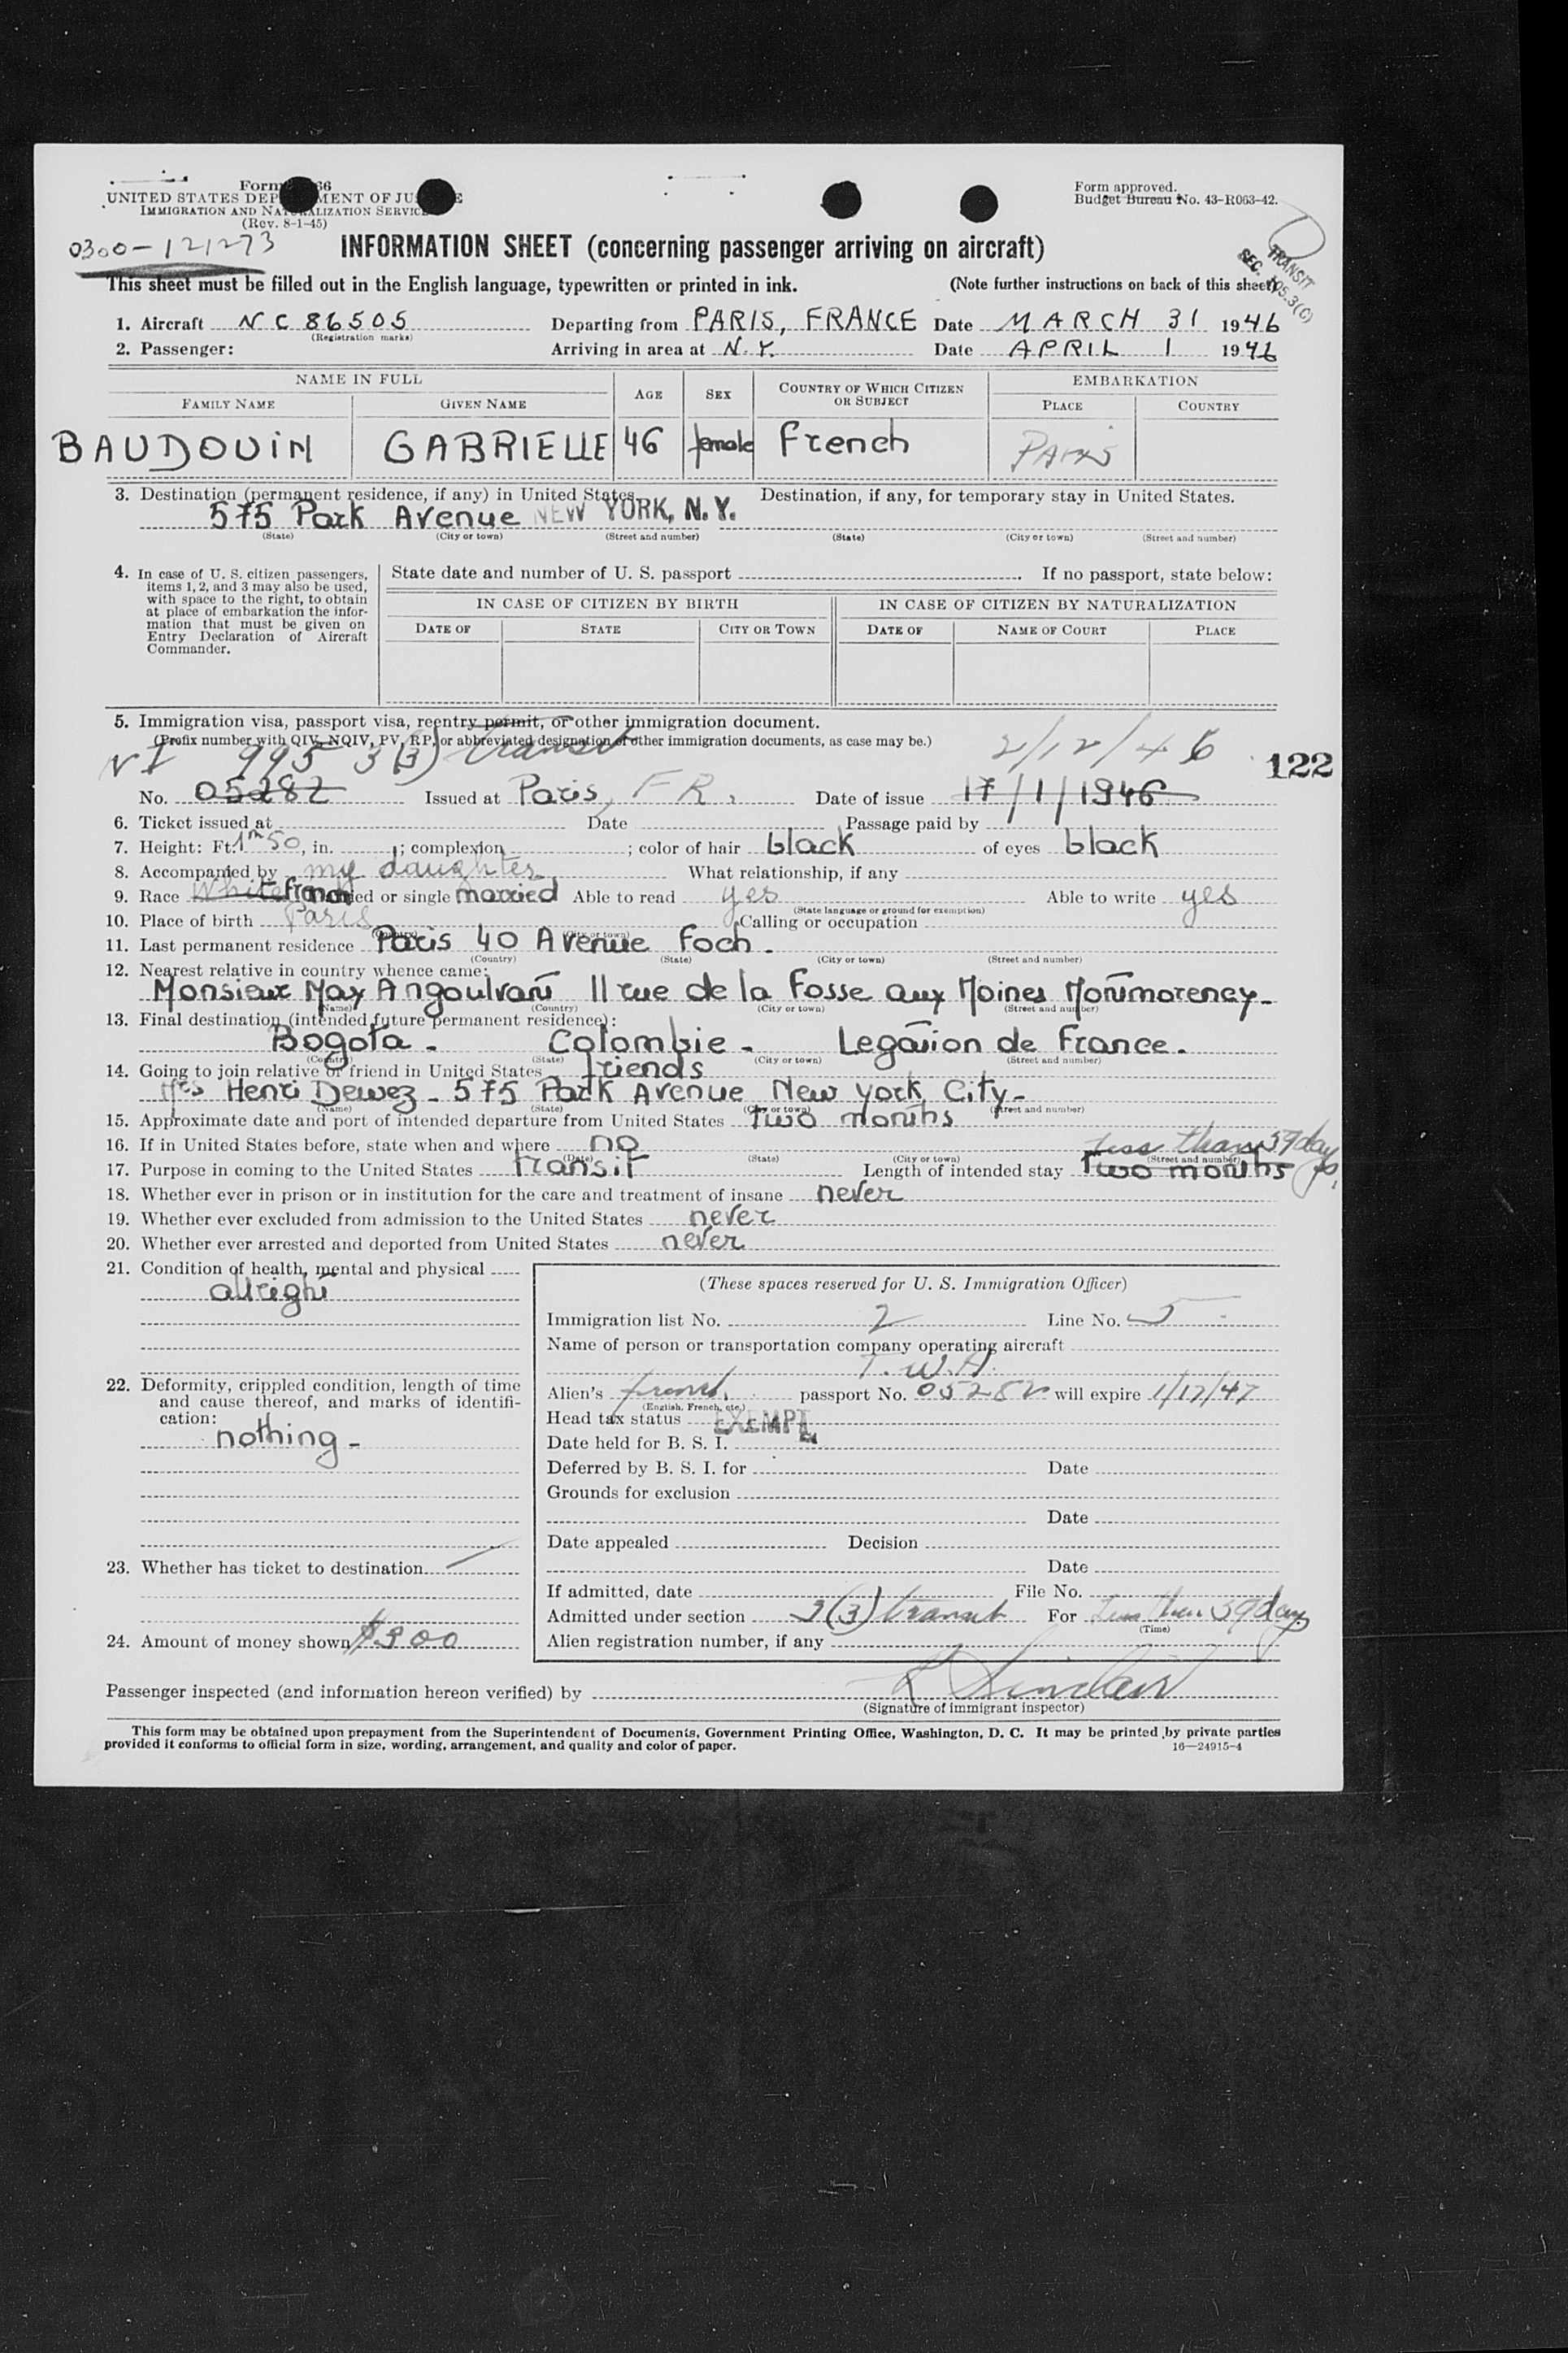 UNITED STATES DEP MENT OF JU E
IMMIGRATION AND NATURALIZATION SERVICE
(Rev. 8-1-45)
Form approved.
Budget Bureau No. 43-R063-42.
0300-121273
INFORMATION SHEET (concerning passenger arriving on aircraft)
TRANSIT
This sheet must be filled out in the English language, typewritten or printed in ink. (Note further instructions on back of this sheet)
1. Aircraft NC 86505 Departing from PARIS, FRANCE Date MARCH 31 1946
(Registration marks)
2. Passenger: Arriving in area at N.Y. Date APRIL 1 1946
NAME IN FULL AGE SEX COUNTRY OF WHICH CITIZEN OR SUBJECT EMBARKATION
FAMILY NAME GIVEN NAME PLACE COUNTRY
BAUDOUIN GABRIELLE 46 female French PARIS
3. Destination (permanent residence, if any) in United States Destination, if any, for temporary stay in United States.
575 Park Avenue NEW YORK, N.Y.
(State) (City or town) (Street and number) (State) (City or town) (Street and number)
4. In case of U. S. citizen passengers, items 1, 2, and 3 may also be used, with space to the right, to obtain at place of embarkation the information that must be given on Entry Declaration of Aircraft Commander.
State date and number of U. S. passport . If no passport, state below:
IN CASE OF CITIZEN BY BIRTH IN CASE OF CITIZEN BY NATURALIZATION
DATE OF STATE CITY OR TOWN DATE OF NAME OF COURT PLACE
5. Immigration visa, passport visa, reentry permit, or other immigration document.
(Prefix number with QIV, NQIV, PV, RP, or abbreviated designation of other immigration documents, as case may be.)
995 3(3) transit 2/12/46
122
No. 05282 Issued at Paris, FR. Date of issue 17/1/1946
6. Ticket issued at Date Passage paid by
7. Height: Ft. 1m50, in. ; complexion ; color of hair black of eyes black
8. Accompanied by my daughter What relationship, if any
9. Race White french Married or single married Able to read yes Able to write yes
(State language or ground for exemption)
10. Place of birth Paris Calling or occupation
11. Last permanent residence Paris 40 Avenue Foch.
(Country) (State) (City or town) (Street and number)
12. Nearest relative in country whence came:
Monsieur Max Angoulvant 11 rue de la Fosse aux Moines Montmorency-
(Name) (Country) (City or town) (Street and number)
13. Final destination (intended future permanent residence):
Bogota - Colombie - Legation de France.
(Country) (State) (City or town) (Street and number)
14. Going to join relative or friend in United States friends
Mrs Henri Dewez - 575 Park Avenue New York City-
(Name) (State) (City or town) (Street and number)
15. Approximate date and port of intended departure from United States two months
16. If in United States before, state when and where no
(Date) (State) (City or town) (Street and number)
less than 59 days
17. Purpose in coming to the United States transit Length of intended stay two months
18. Whether ever in prison or in institution for the care and treatment of insane never
19. Whether ever excluded from admission to the United States never
20. Whether ever arrested and deported from United States never
21. Condition of health, mental and physical
allright
22. Deformity, crippled condition, length of time and cause thereof, and marks of identification:
nothing-
23. Whether has ticket to destination
24. Amount of money shown $300
(These spaces reserved for U. S. Immigration Officer)
Immigration list No. 2 Line No. 5
Name of person or transportation company operating aircraft
T.W.A.
Alien's french passport No. 05282 will expire 1/17/47
(English, French, etc.)
Head tax status EXEMPT
Date held for B. S. I.
Deferred by B. S. I. for Date
Grounds for exclusion
Date
Date appealed Decision
Date
If admitted, date File No.
Admitted under section 3(3) transit For Less than 59 days
(Time)
Alien registration number, if any
Passenger inspected (and information hereon verified) by Sinclair
(Signature of immigrant inspector)
This form may be obtained upon prepayment from the Superintendent of Documents, Government Printing Office, Washington, D. C. It may be printed by private parties
provided it conforms to official form in size, wording, arrangement, and quality and color of paper. 16—24915-4